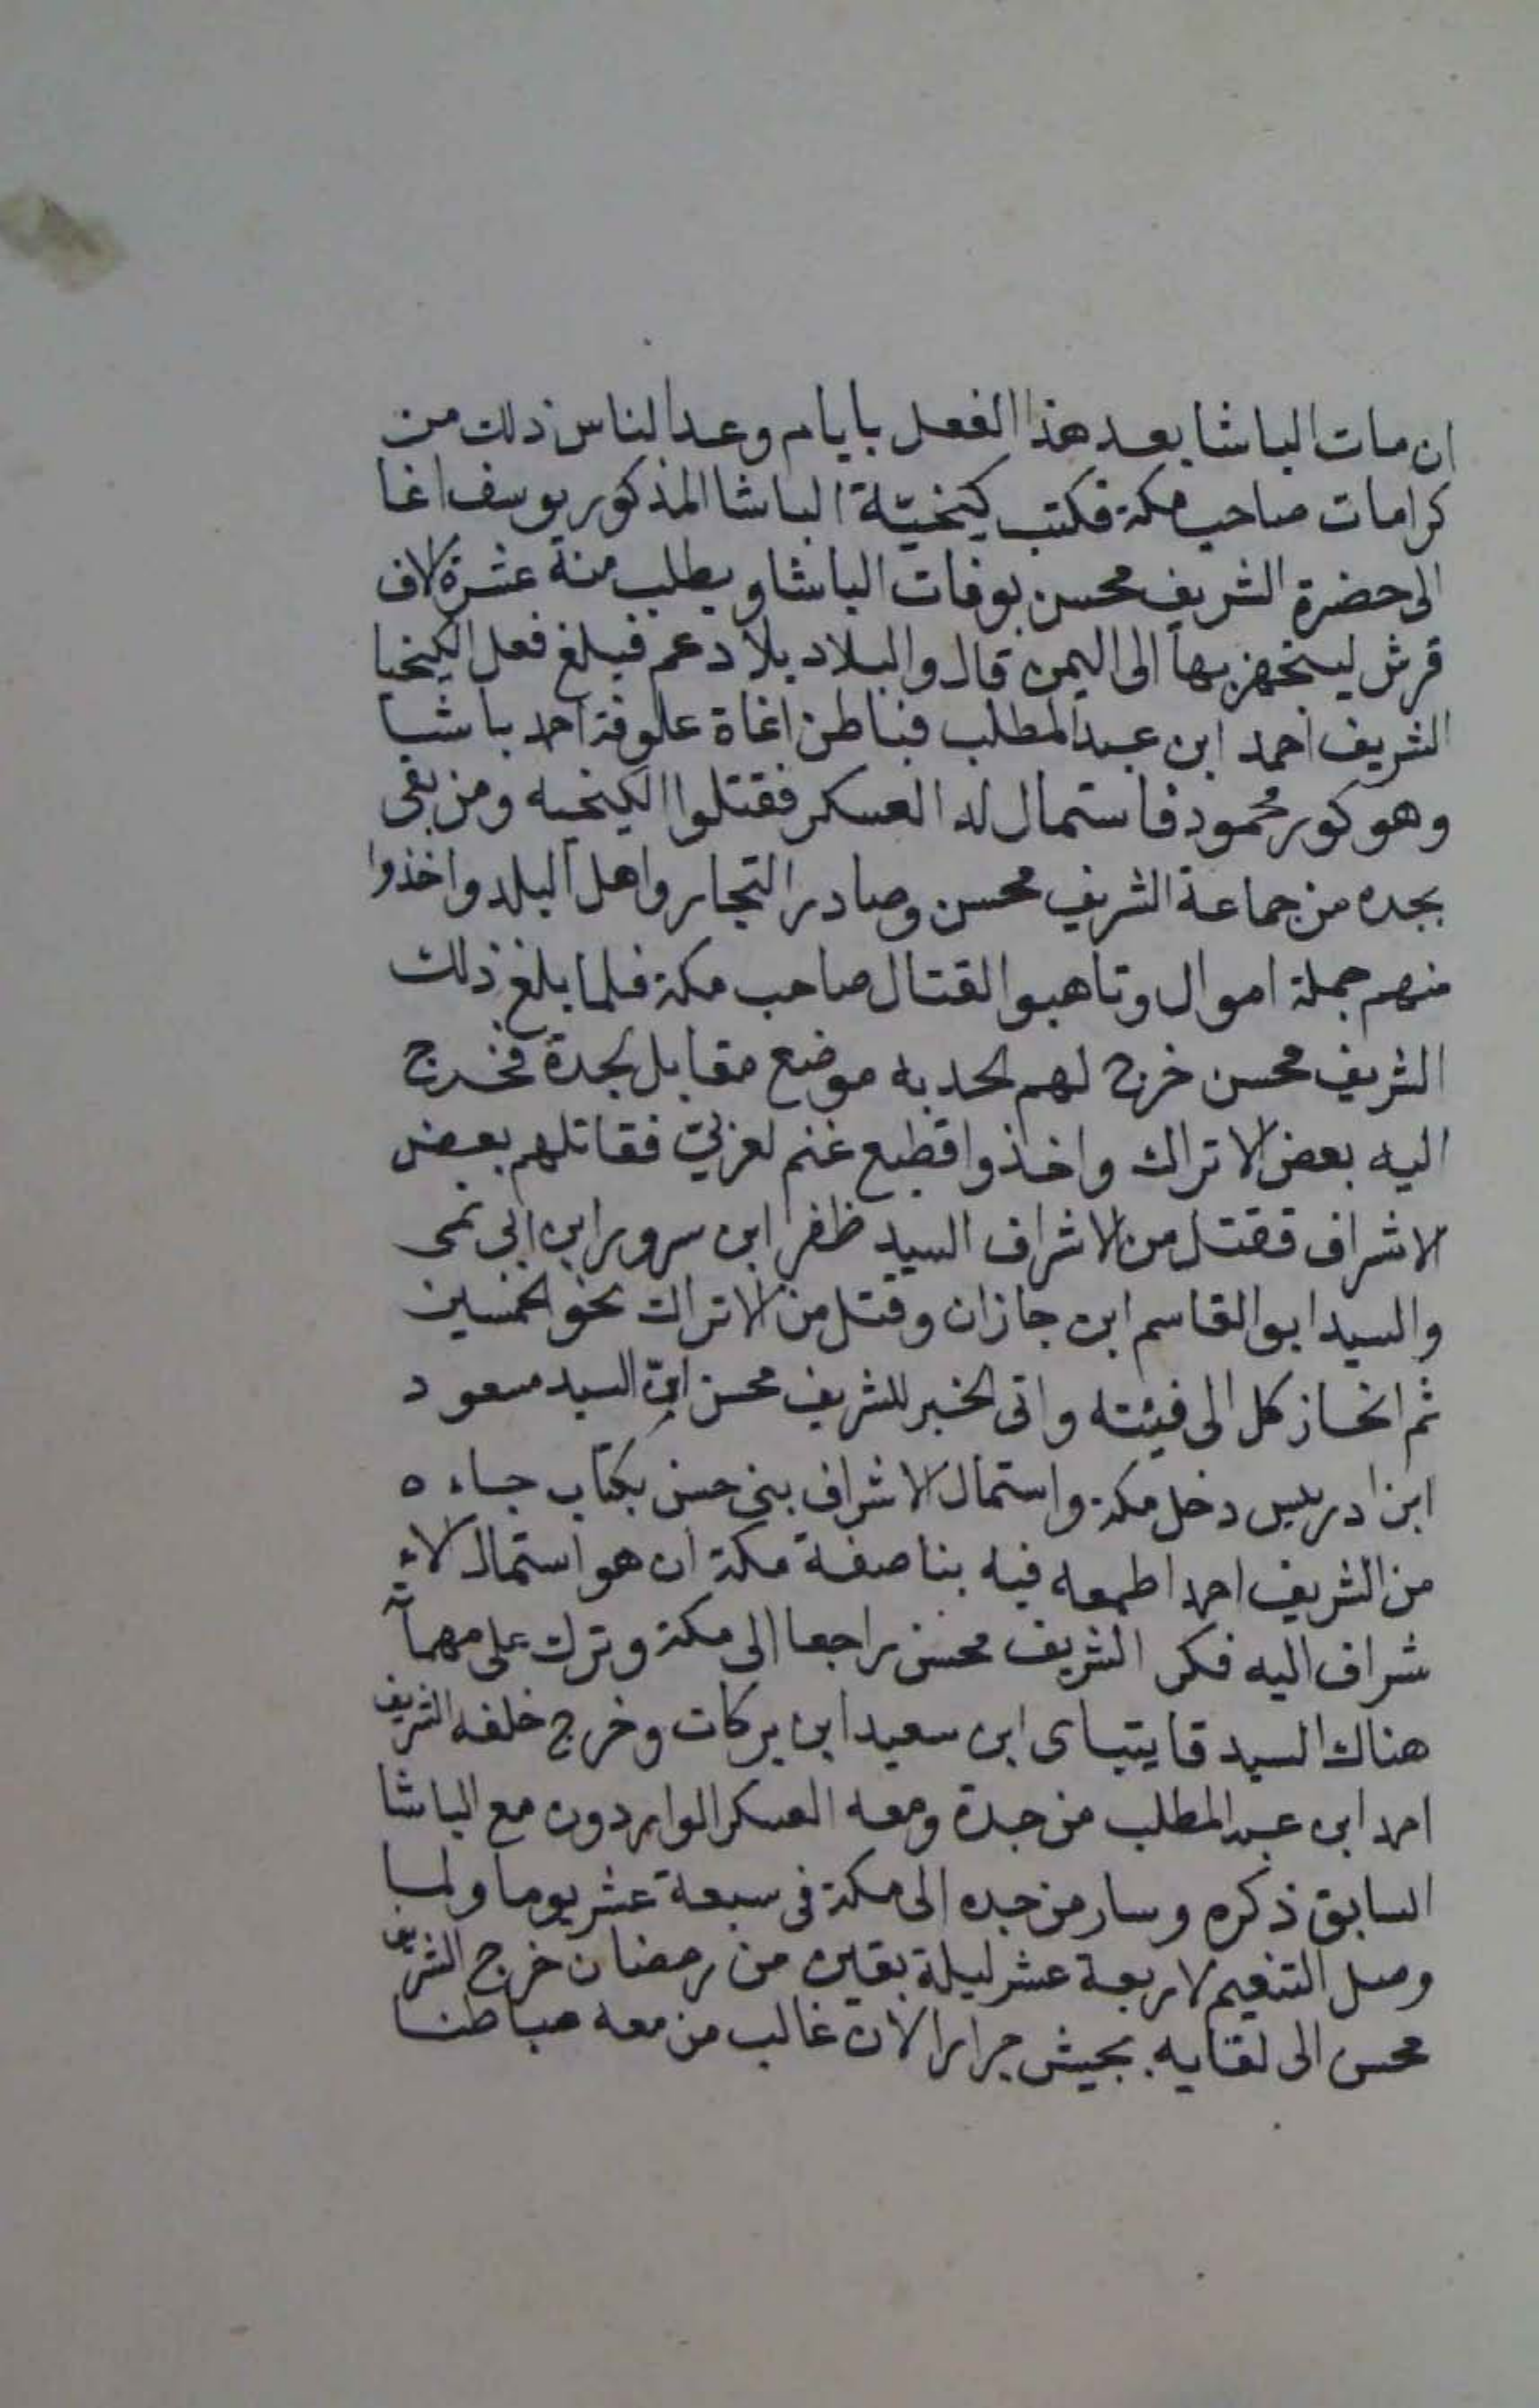 ان مات الباشا بعد هذا الفعل بايام وعد الناس ذلك من
كرامات صاحب مكة فكتب كيخيّة الباشا المذكور يوسف اغا
الى حضرة الشريف محسن بوفات الباشا ويطلب منة عشرة الاف
قرش ليتجهز بها الى اليمن قال والبلاد بلادعم فبلغ فعل الكيخيا
الشريف احمد ابن عبد المطلب فباطن اغاة علوفة احمد باشا
وهو كور محمود فاستمال له العسكر فقتلوا الكيخيه ومن بقى
بجده من جماعة الشريف محسن وصادر التجار واهل البلد واخذوا
منهم جملة اموال وتاهبوا القتال صاحب مكة فلما بلغ ذلك
الشريف محسن خرج لهم لحدبه موضع مقابل لجدة فخرج
اليه بعض الاتراك واخذوا قطيع غنم لعزبيّ فقاتلهم بعض
الاشراف فقتل من الاشراف السيد ظفر ابن سرور ابن ابى نمى
والسيد ابو القاسم ابن جازان وقتل من الاتراك نحو الخمسين
ثم انحاز كل الى فيئته واتى الخبر للشريف محسن انّ السيد مسعود
ابن ادريس دخل مكة واستمال الاشراف بنى حسن بكتاب جاءه
من الشريف احمد اطمعه فيه بناصفة مكة ان هو استمال الاء
شراف اليه فكر الشريف محسن راجعا الى مكة وترك على مهماته
هناك السيد قايتباى ابن سعيد ابن بركات وخرج خلفه الشريف
احمد ابن عبد المطلب من جدة ومعه العسكر الواردون مع الباشا
السابق ذكره وسار من جده الى مكة فى سبعة عشر يوما ولما
وصل التنعيم لاربعة عشر ليلة بقين من رمضان خرج الشريف
محسن الى لقايه بجيش جرار الا ان غالب من معه مباطنا